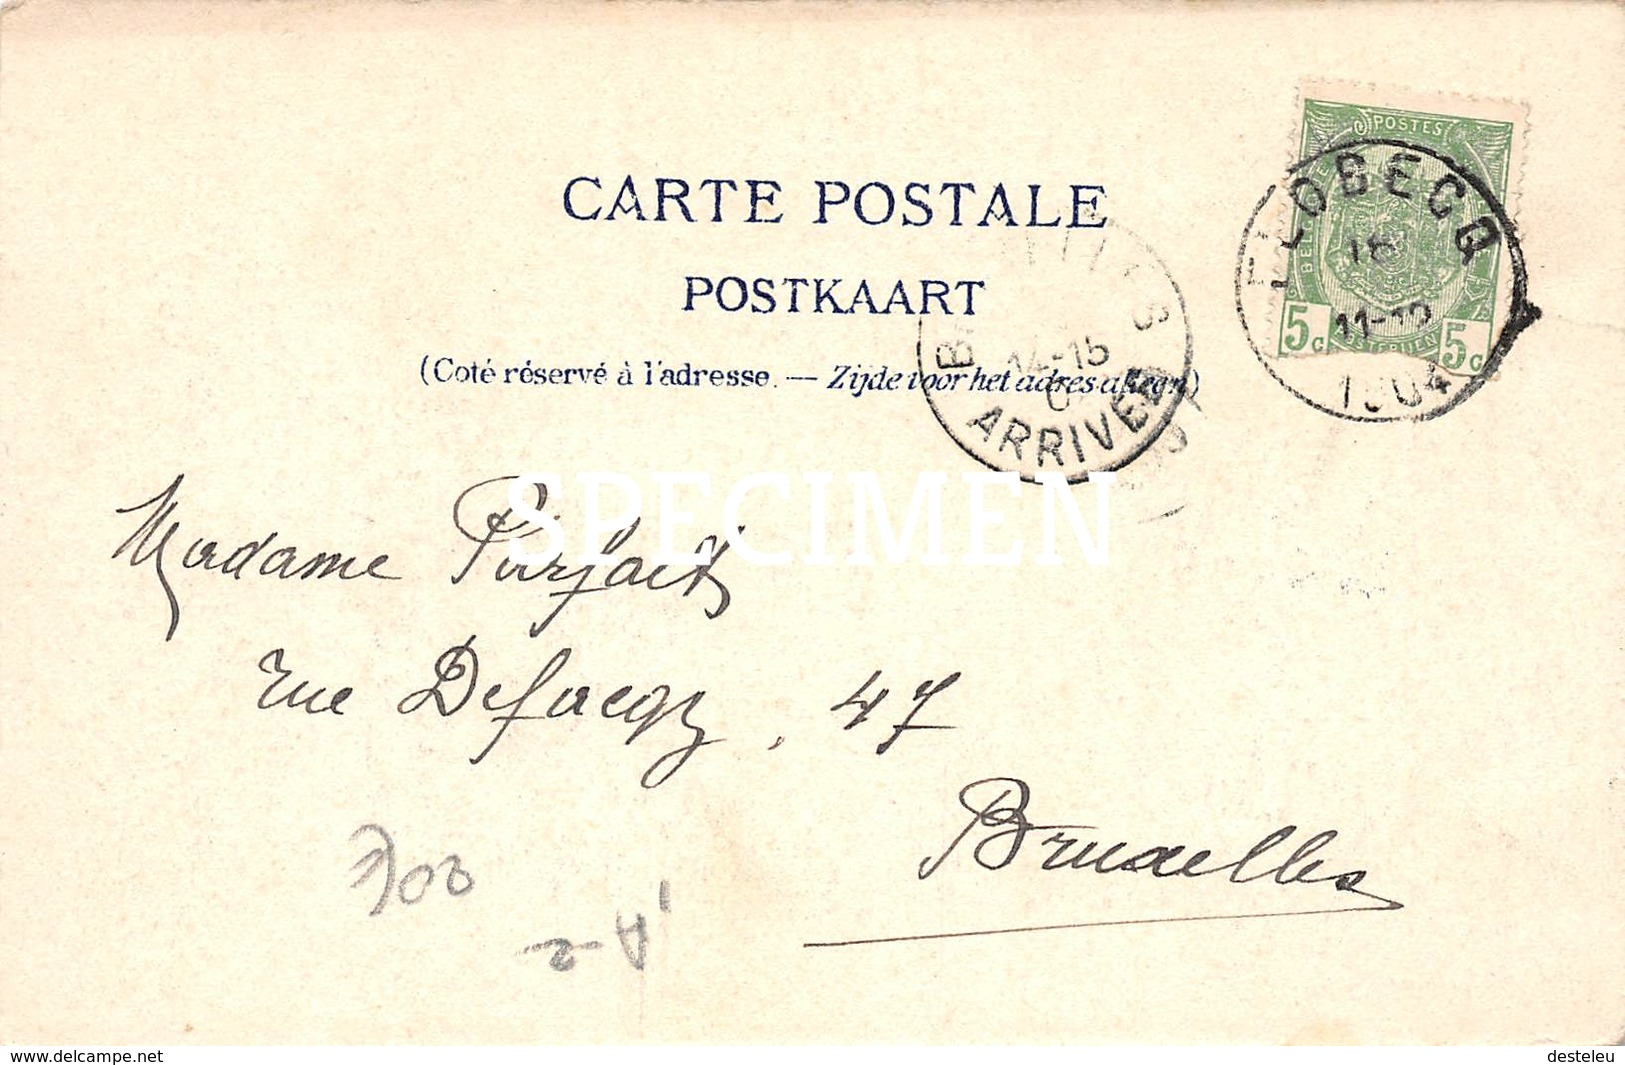 CARTE POSTALE
POSTKAART
(Coté réservé à l'adresse. — Zijde voor het adres alleen)
POSTES
5c 5c
FLOBECQ
11-12
1904
14-15
ARRIVÉE
SPECIMEN
Madame Parfait
rue Defacqz, 47
Bruxelles
www.delcampe.net
desteleu